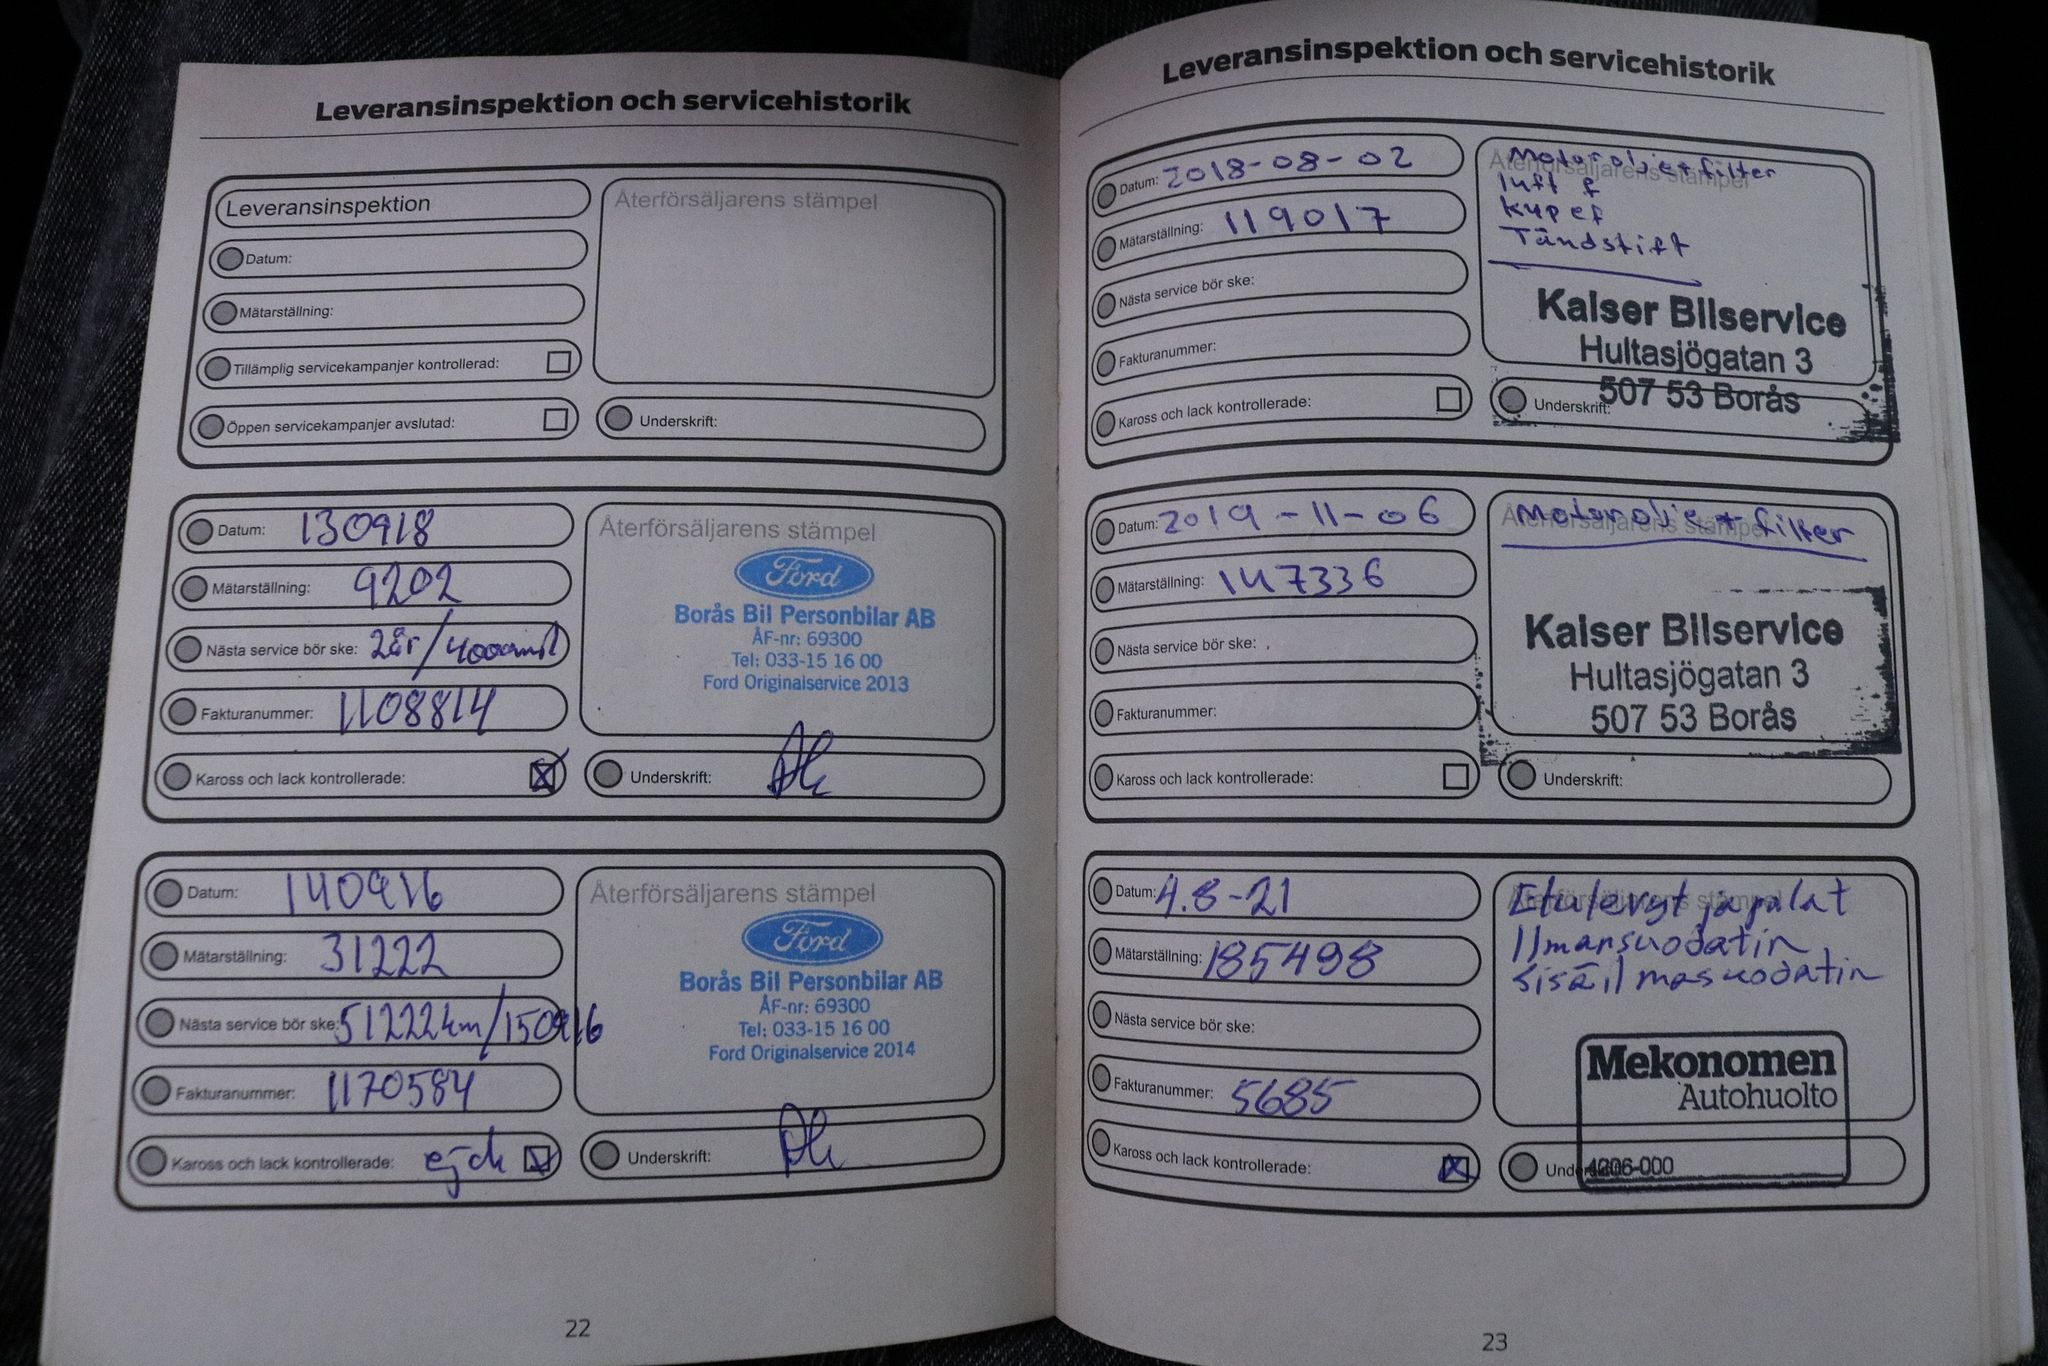 Leveransinspektion och servicehistorik
Leveransinspektion
Datum:
Mätarställning:
Tillämplig servicekampanjer kontrollerad:
Öppen servicekampanjer avslutad:
Återförsäljarens stämpel
Underskrift:
Datum: 130918
Mätarställning: 9202
Nästa service bör ske: 2år/4000mil
Fakturanummer: 1108814
Kaross och lack kontrollerade:
Återförsäljarens stämpel
Ford
Borås Bil Personbilar AB
ÅF-nr: 69300
Tel: 033-15 16 00
Ford Originalservice 2013
Underskrift:
Datum: 140916
Mätarställning: 31222
Nästa service bör ske: 51222km/150916
Fakturanummer: 1170584
Kaross och lack kontrollerade:
Återförsäljarens stämpel
Ford
Borås Bil Personbilar AB
ÅF-nr: 69300
Tel: 033-15 16 00
Ford Originalservice 2014
Underskrift:
22
Leveransinspektion och servicehistorik
Datum: 2018-08-02
Mätarställning: 119017
Nästa service bör ske:
Fakturanummer:
Kaross och lack kontrollerade:
Återförsäljarens stämpel
Motorolje+filter
luft f
kupef
Tändstift
Kaiser Bilservice
Hultasjögatan 3
507 53 Borås
Underskrift:
Datum: 2019-11-06
Mätarställning: 147336
Nästa service bör ske:
Fakturanummer:
Kaross och lack kontrollerade:
Återförsäljarens stämpel
Motorolje + filter
Kaiser Bilservice
Hultasjögatan 3
507 53 Borås
Underskrift:
Datum: 4.8-21
Mätarställning: 185498
Nästa service bör ske:
Fakturanummer: 5685
Kaross och lack kontrollerade:
Återförsäljarens stämpel
Etulevyt ja palat
Ilmansuodatin
Sisäilmasuodatin
Mekonomen
Autohuolto
4206-000
23